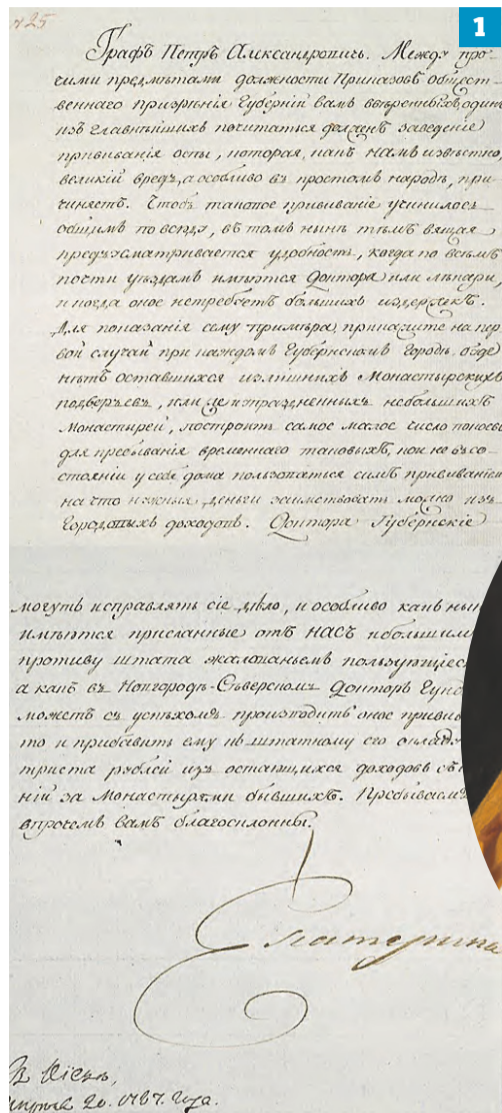 № 25
1
Графъ Петръ Александровичь. Между про-
чими предмѣтами должности Приказовъ общест-
веннаго призрѣнія Губерній вамъ ввѣренныхъ, одинъ
изъ главнѣйшихъ почитаться долженъ заведеніе
прививанія оспы, которая, какъ намъ извѣстно,
великій вредъ, а особливо въ простомъ народѣ, при-
чиняетъ. Чтобъ таковое прививаніе учинилось
общимъ повсюду, въ томъ нынѣ тѣмъ вящая
предъусматривается удобность, когда по всѣмъ
почти уѣздамъ имѣются Доктора или лѣкари,
и когда оное нетребуетъ большихъ издержекъ.
Для показанія сему примѣра, прикажите на пер
вой случай при каждомъ Губернскомъ Городѣ, въ
оставшихся излишнихъ Монастырскихъ
подворьевъ, или и упраздненныхъ небольшихъ
Монастырей, построить самое малое число покоевъ
для пребыванія временнаго таковыхъ, кои не въ со-
стояніи у себя дома пользоваться симъ прививаніемъ
на что нужныя деньги заимствовать можно изъ
Городовыхъ доходовъ. Доктора Губернскіе
могутъ исправлять сіе дѣло, и особливо какъ нын
имѣются присланные отъ НАСЪ и большимъ
противу штата жалованьемъ пользующіеся
а какъ въ Новгородѣ-Сѣверскомъ Докторъ Гунъ
можетъ съ успѣхомъ производить оное приви
то и прибавить ему къ штатному его оклад
триста рублей изъ остающихся доходовъ съ
ній за Монастырями бывшихъ. Пребываемъ
впрочемъ вамъ благосклонны.
Екатерина
В Кіевѣ,
апреля 20. 1787. года.